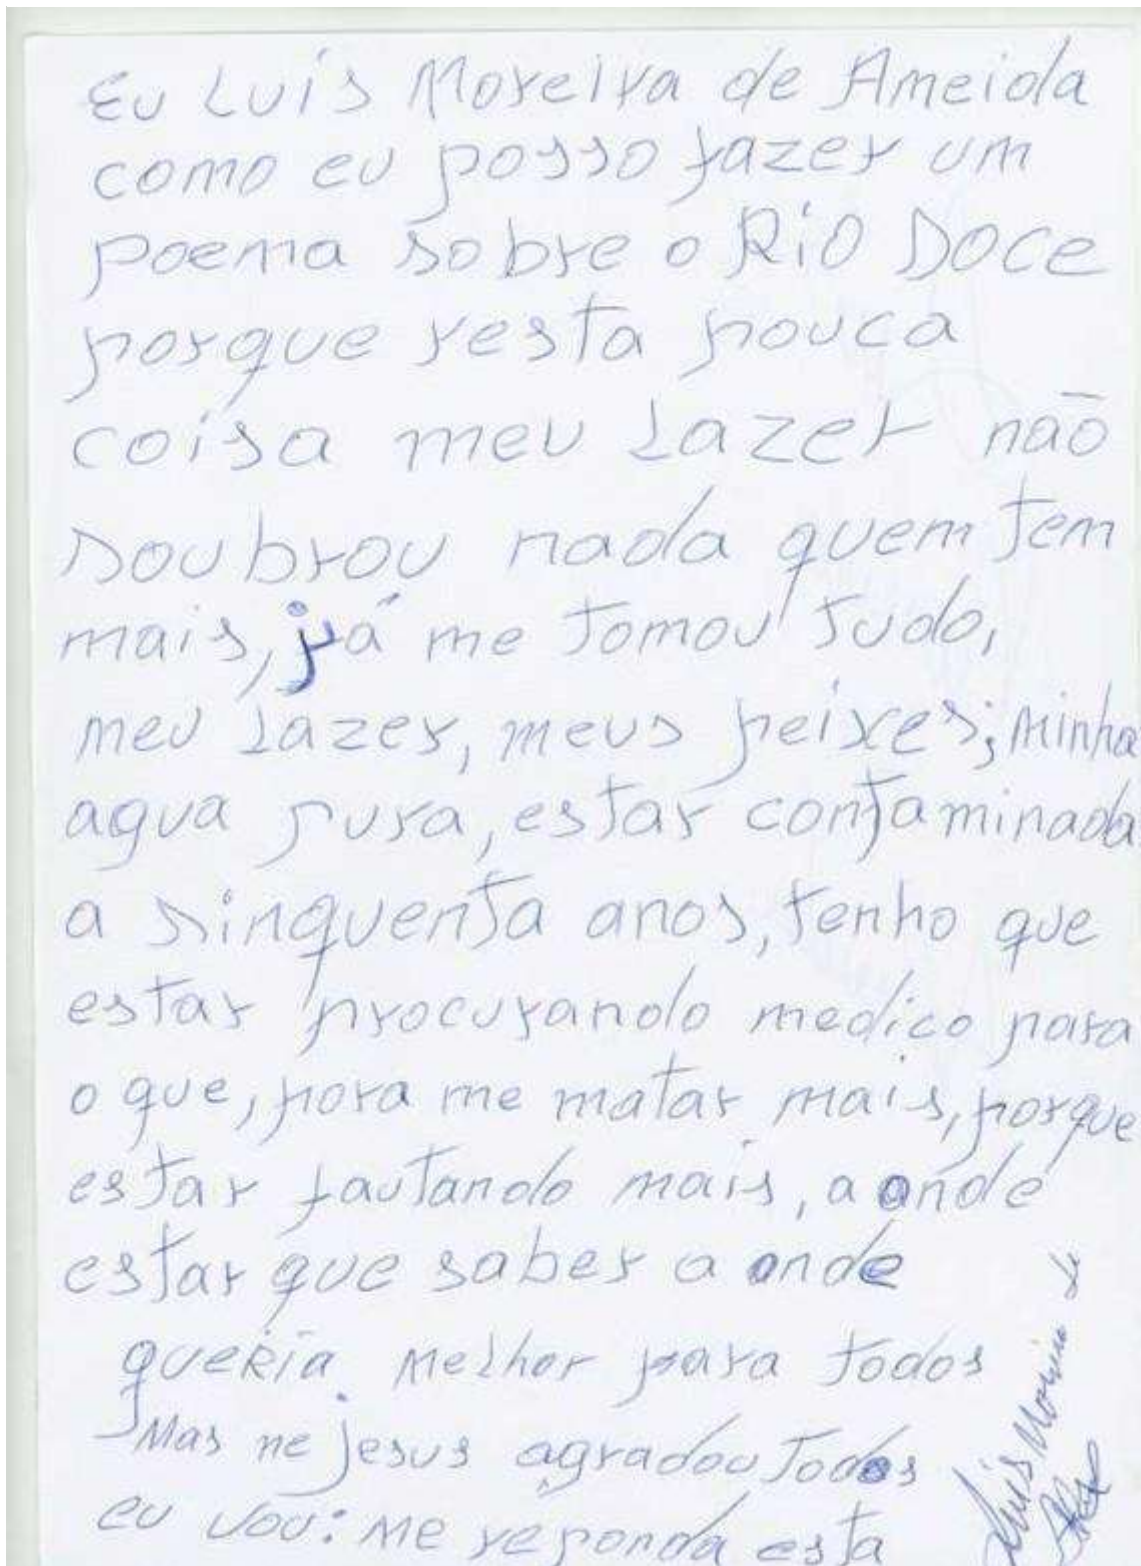 Eu Luís Moreira de Ameida
como eu posso fazer um
poema sobre o RIO DOCE
porque resta pouca
coisa meu lazer não
soubrou nada quem tem
mais, já me tomou tudo,
meu lazer, meus peixes; minha
agua pura, estar contaminada
a sinquenta anos, tenho que
estar procurando medico para
o que, pora me matar mais, porque
estar fautando mais, a onde
estar que saber a onde
queria melhor para todos
Mas ne jesus agradou todos
eu vou: me reponda esta
Luis Moreira de